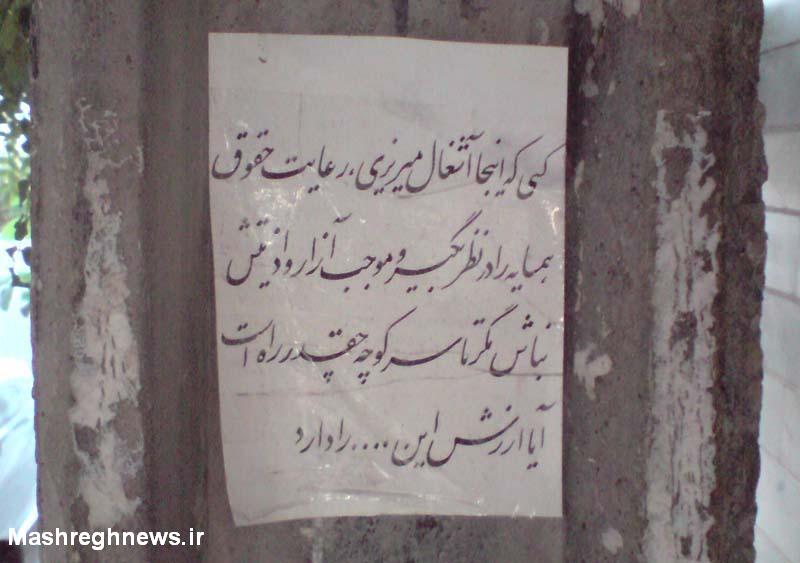 کسی که اینجا آشغال میریزی، رعایت حقوق
همسایه را در نظر بگیر و موجب آزار و اذیتش
نباش مگر تا سر کوچه چقدر راه است
آیا ارزش این .... را دارد
Mashreghnews.ir